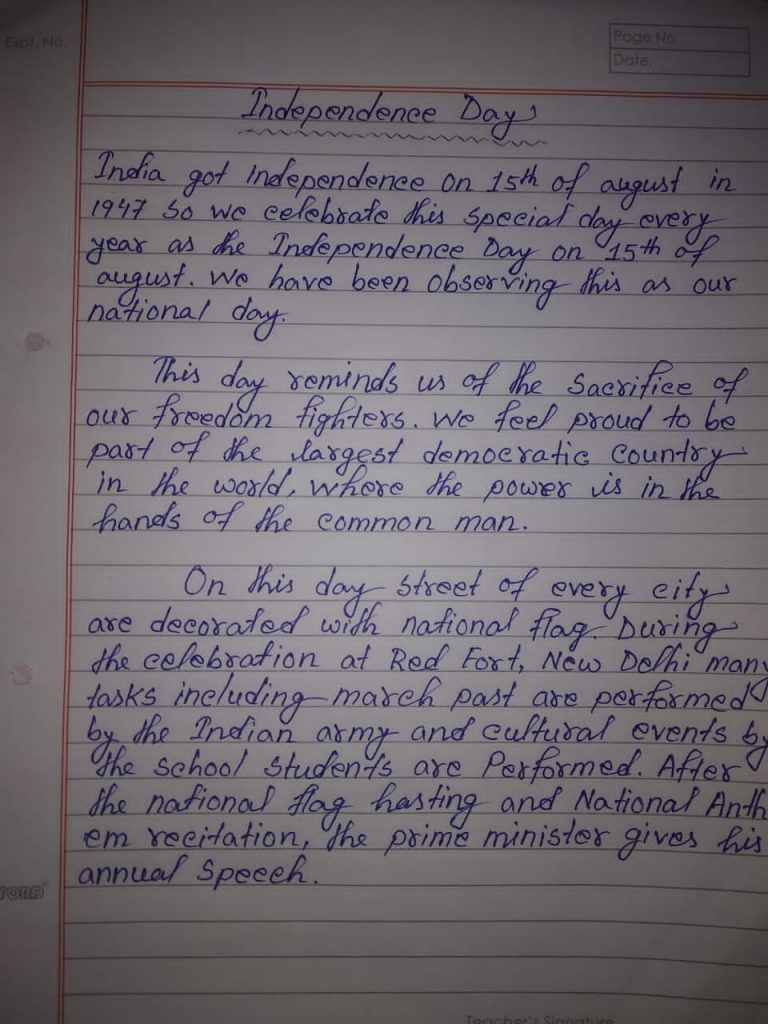 Expt. No.
Page No.
Date.
Independence Day
India got independence on 15th of august in
1947 so we celebrate this special day every
year as the Independence Day on 15th of
august. We have been observing this as our
national day.
This day reminds us of the sacrifice of
our freedom fighters. We feel proud to be
part of the largest democratic country
in the world, where the power is in the
hands of the common man.
On this day street of every city
are decorated with national flag. During
the celebration at Red Fort, New Delhi many
tasks including march past are performed
by the Indian army and cultural events by
the school students are Performed. After
the national flag hasting and National Anth
em recitation, the prime minister gives his
annual speech.
Teacher's Signature